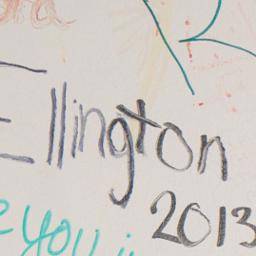 Ellington
2013
you